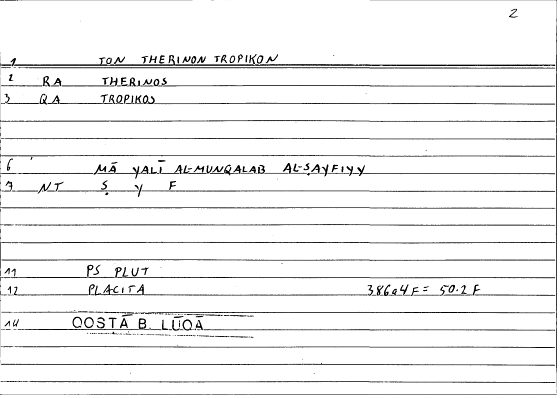 2
1 TON THERINON TROPIKON
2 RA THERINOS
3 QA TROPIKOS
6 MĀ YALĪ AL-MUNQALAB AL-ṢAYFIYY
7 NT Ṣ Y F
11 PS PLUT
12 PLACITA 386a4F= 50.2F
14 QOSTĀ B. LŪQĀ